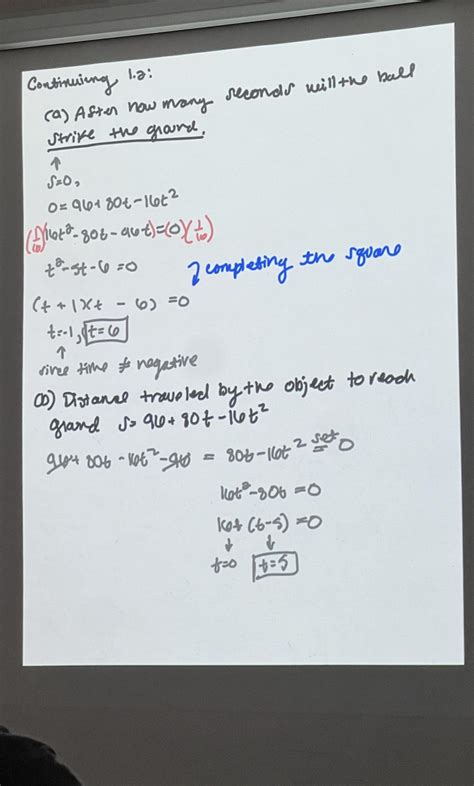 Continuing 1.2:
(a) After how many seconds will the ball
strike the ground.
↑
s=0,
0 = 96+80t-16t²
(1/16)(16t²-80t-96t)=(0)(1/16)
t²-5t-6=0
↓ completing the square
(t+1)(t-6)=0
t=-1, t=6
↑
since time ≠ negative
(b) Distance traveled by the object to reach
ground s=96+80t-16t²
96+80t-16t²-96 = 80t-16t² set = 0
16t²-80t=0
16t(t-5)=0
↓ ↓
t=0 t=5